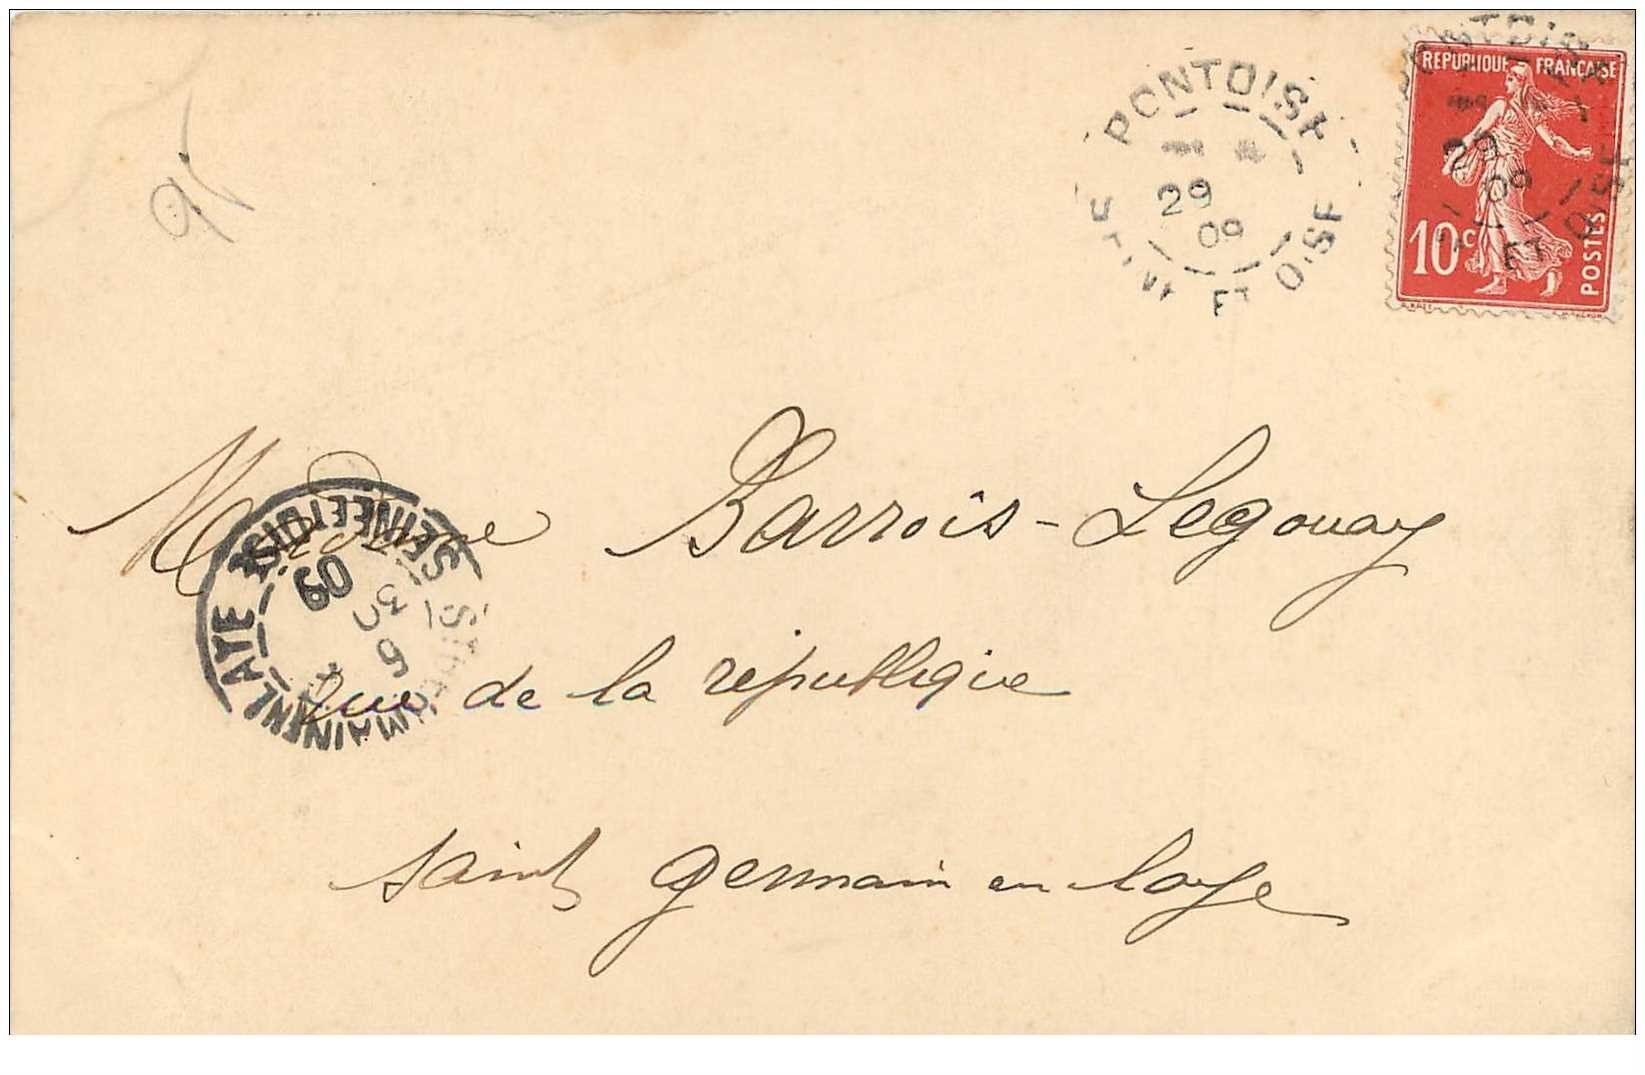 95
PONTOISE
29
09
SEINE ET OISE
REPUBLIQUE FRANÇAISE
10c
POSTES
PONTOISE
29
09
ET OISE
Madame Barrois-Legouay
rue de la république
saint germain en laye
ST GERMAIN EN LAYE
SEINE ET OISE
09